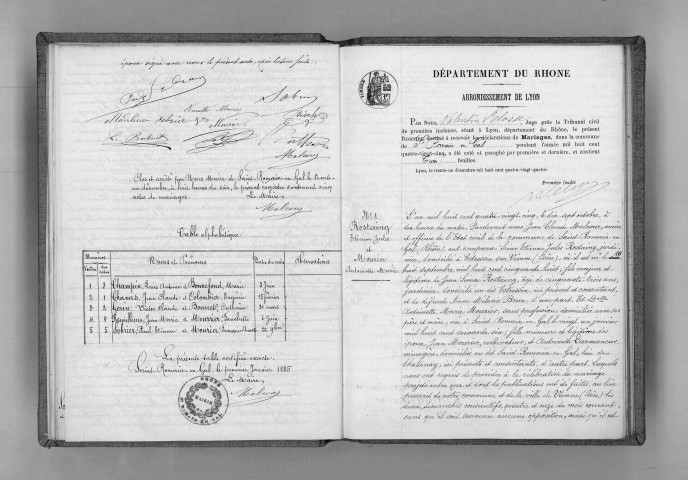 époux signé avec nous le présent acte, après lecture faite.
Clos et arrêté par Nous Maire de Saint-Romain en Gal le trente
un décembre, à huit heures du soir, le présent registre contenant cinq
actes de mariages. Le Maire
Table alphabétique
Numéros
Noms et Prénoms
Date des actes
Observations
1 3 Champin, Antoine et Bonnefond, Marie 3 Juin
2 1 Chavas, Jean Claude et Colombier, 15 février
3 2 Gerin Victor Claude et Bonnet, Catherine 20 mars
4 4 Jean Marie et Mourier, 6 Juin
5 5 Sobrier, Paul Etienne et Mourier, 22 9bre
La présente table certifiée exacte.
Saint-Romain en Gal le premier Janvier 1885
Le Maire,
MAIRIE
DÉPARTEMENT DU RHONE
ARRONDISSEMENT DE LYON
PAR NOUS, Valentin Juge près le Tribunal civil
de première instance, séant à Lyon, département du Rhône, le présent
Registre destiné à recevoir les déclarations de Mariages, dans la commune
de St Romain en Gal pendant l'année mil huit cent
quatre-vingt-cinq, a été coté et paraphé par première et dernière, et contient
feuilles.
Lyon, le trente-un décembre mil huit cent quatre-vingt-quatre.
Première feuille
N° 1
Rostaing
Etienne Jules
et
Mourier
Antoinette Marie
L'an mil huit cent quatre vingt cinq, le dix sept octobre, à
dix heures du matin, Pardevant nous Jean Claude maire
et officier de l'état civil de la commune de Saint Romain en
Gal (Rhône) ont comparu Sieur Etienne Jules Rostaing, jardi-
nier, domicilié à Estressin sur Vienne (Isère) où il est né le
huit septembre mil huit cent cinquante huit, fils majeur et
légitime de Jean Rostaing, âgé de cinquante trois ans,
jardinier, domicilié au dit Estressin, ici présent et consentant,
et de défunte Anne Mélanie Brun d'une part. Et Delle
Antoinette Marie Mourier, sans profession, domiciliée avec ses
père et mère, née à Saint Romain en Gal le vingt un janvier
mil huit cent soixante six, fille mineure et légitime des
époux Jean Mourier, cultivateur, et Antoinette
ménagère, domiciliés au dit Saint-Romain en Gal, lieu de
Chatenay, ici présents et consentants, d'autre part. Lesquels
nous ont requis de procéder à la célébration du mariage
projeté entre eux et dont les publications ont été faites, au lieu
prescrit de notre commune et de la ville de Vienne (Isère) les
deux dimanches consécutifs, quatre et onze du mois courant,
sans qu'il soit survenu aucune opposition, ainsi qu'il est